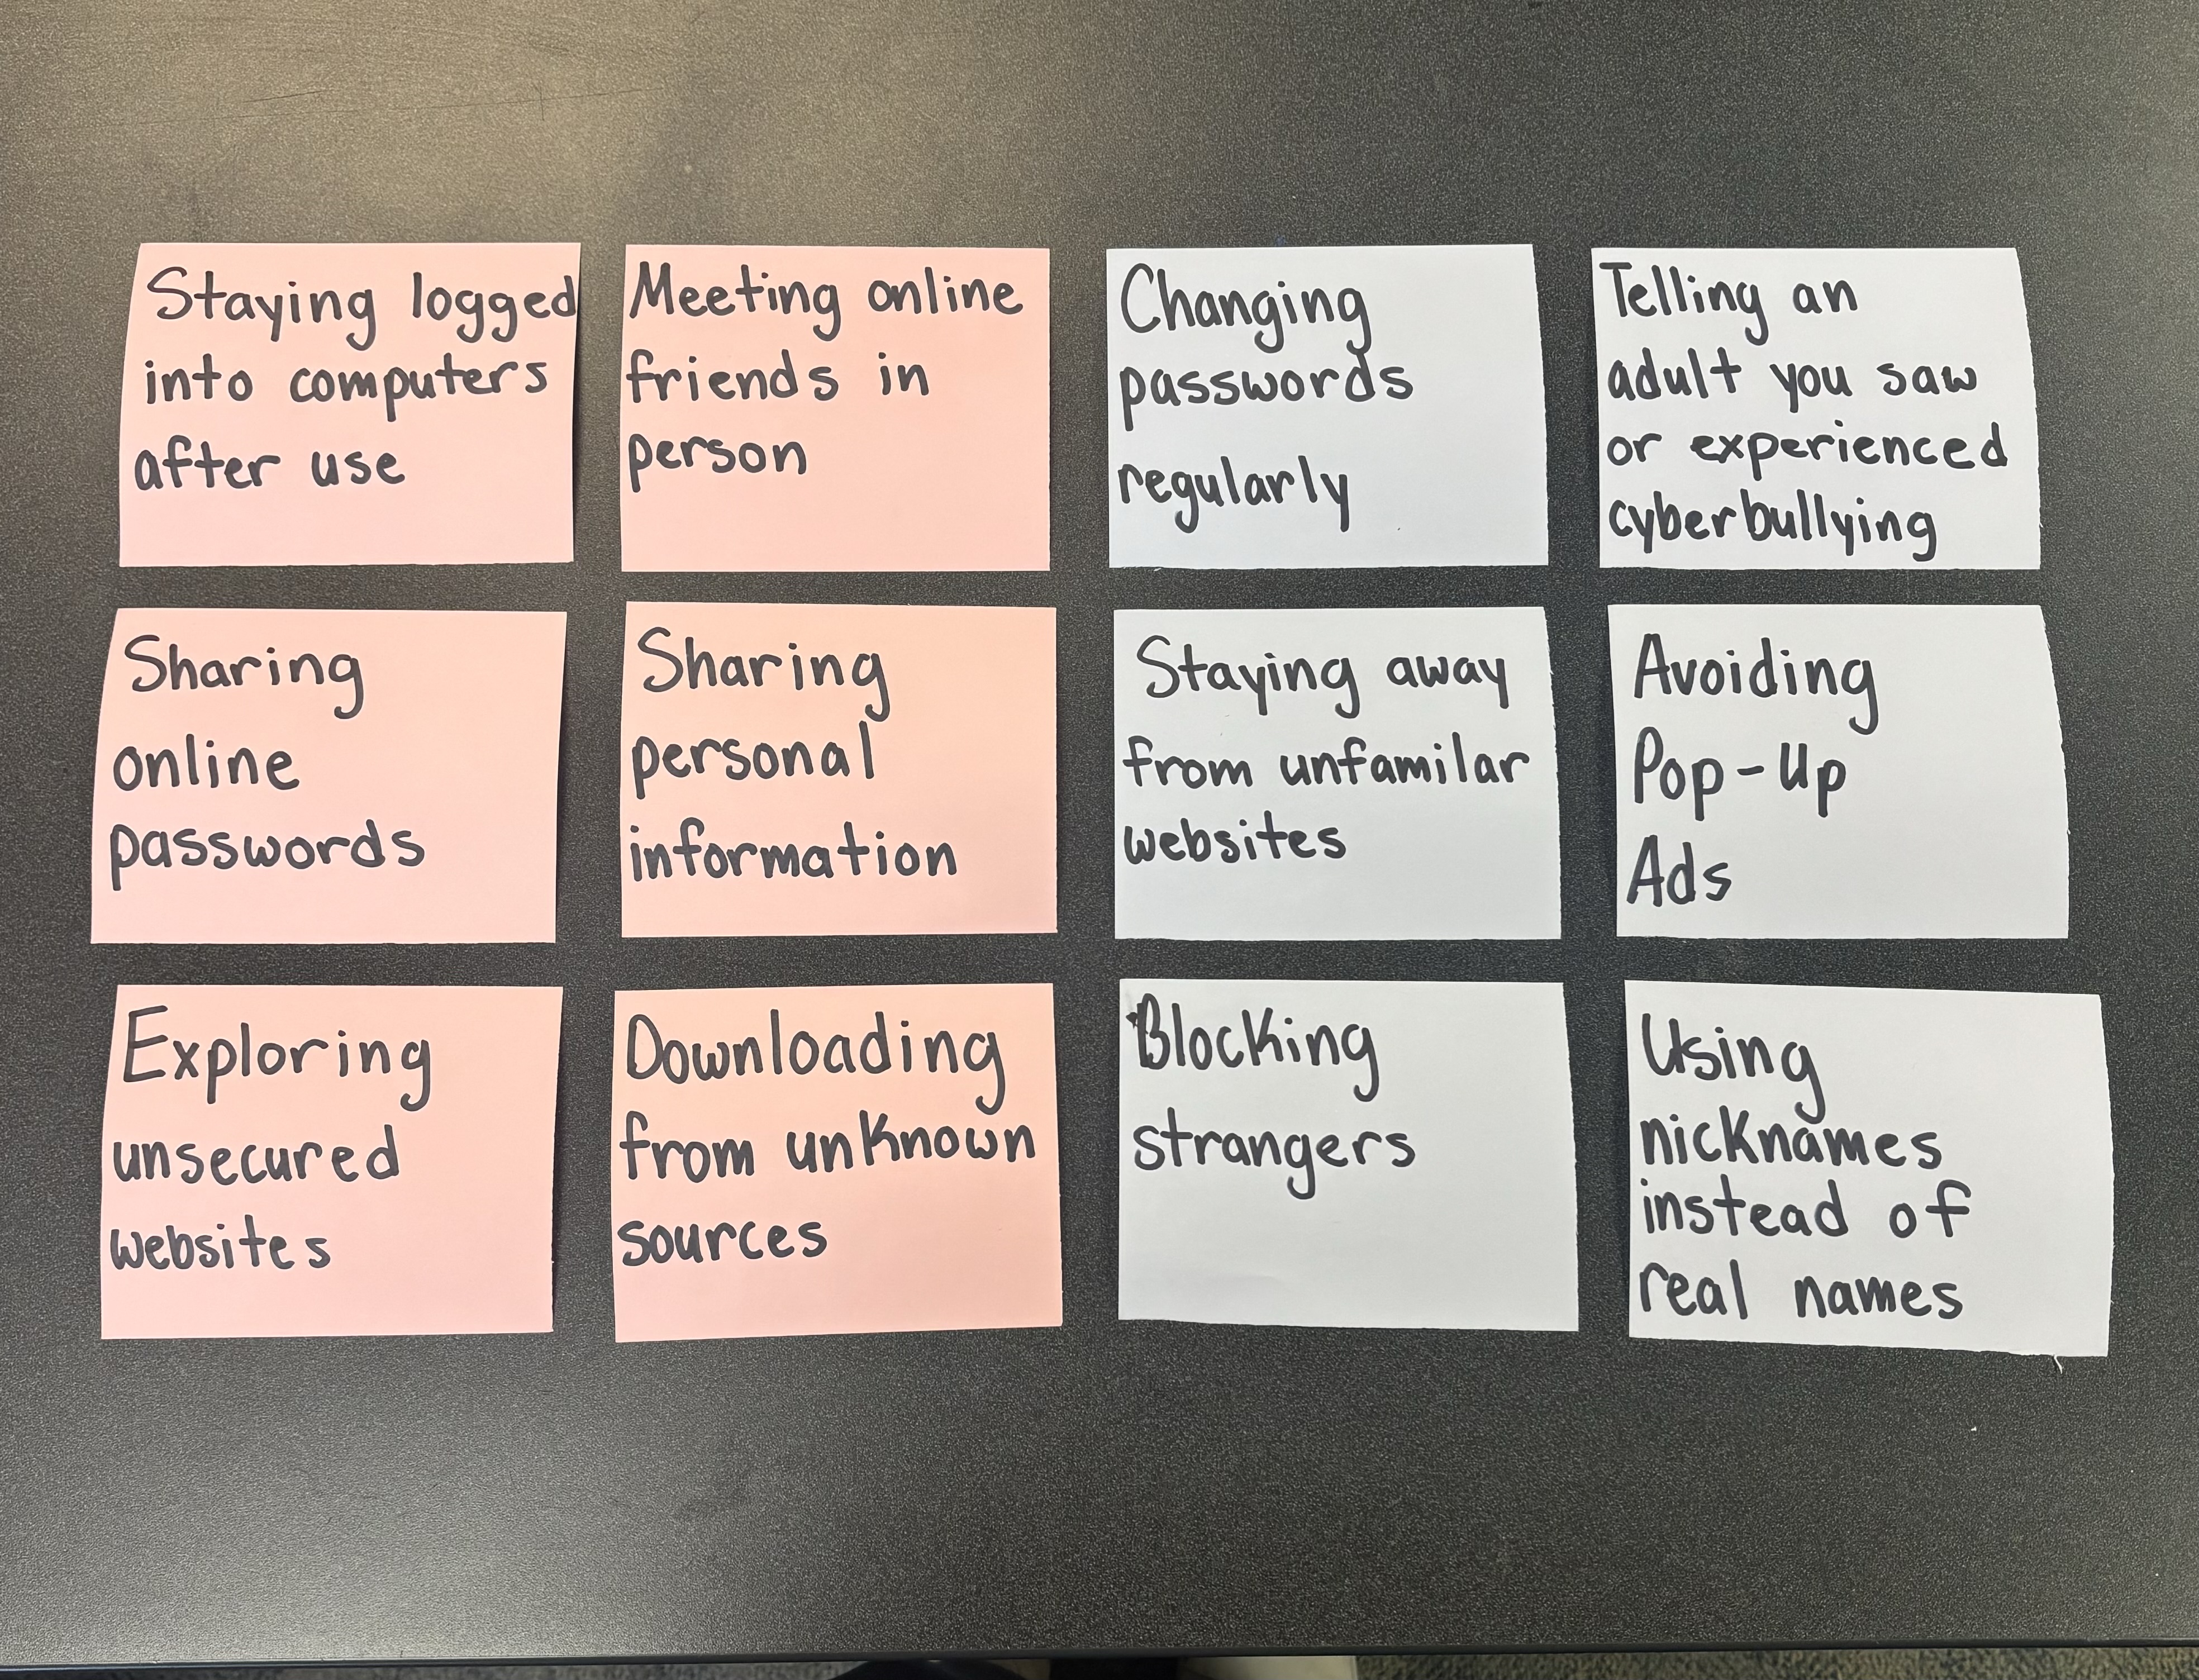 Staying logged
into computers
after use
Meeting online
friends in
person
Changing
passwords
regularly
Telling an
adult you saw
or experienced
cyberbullying
Sharing
online
passwords
Sharing
personal
information
Staying away
from unfamilar
websites
Avoiding
Pop-Up
Ads
Exploring
unsecured
websites
Downloading
from unknown
sources
Blocking
strangers
Using
nicknames
instead of
real names